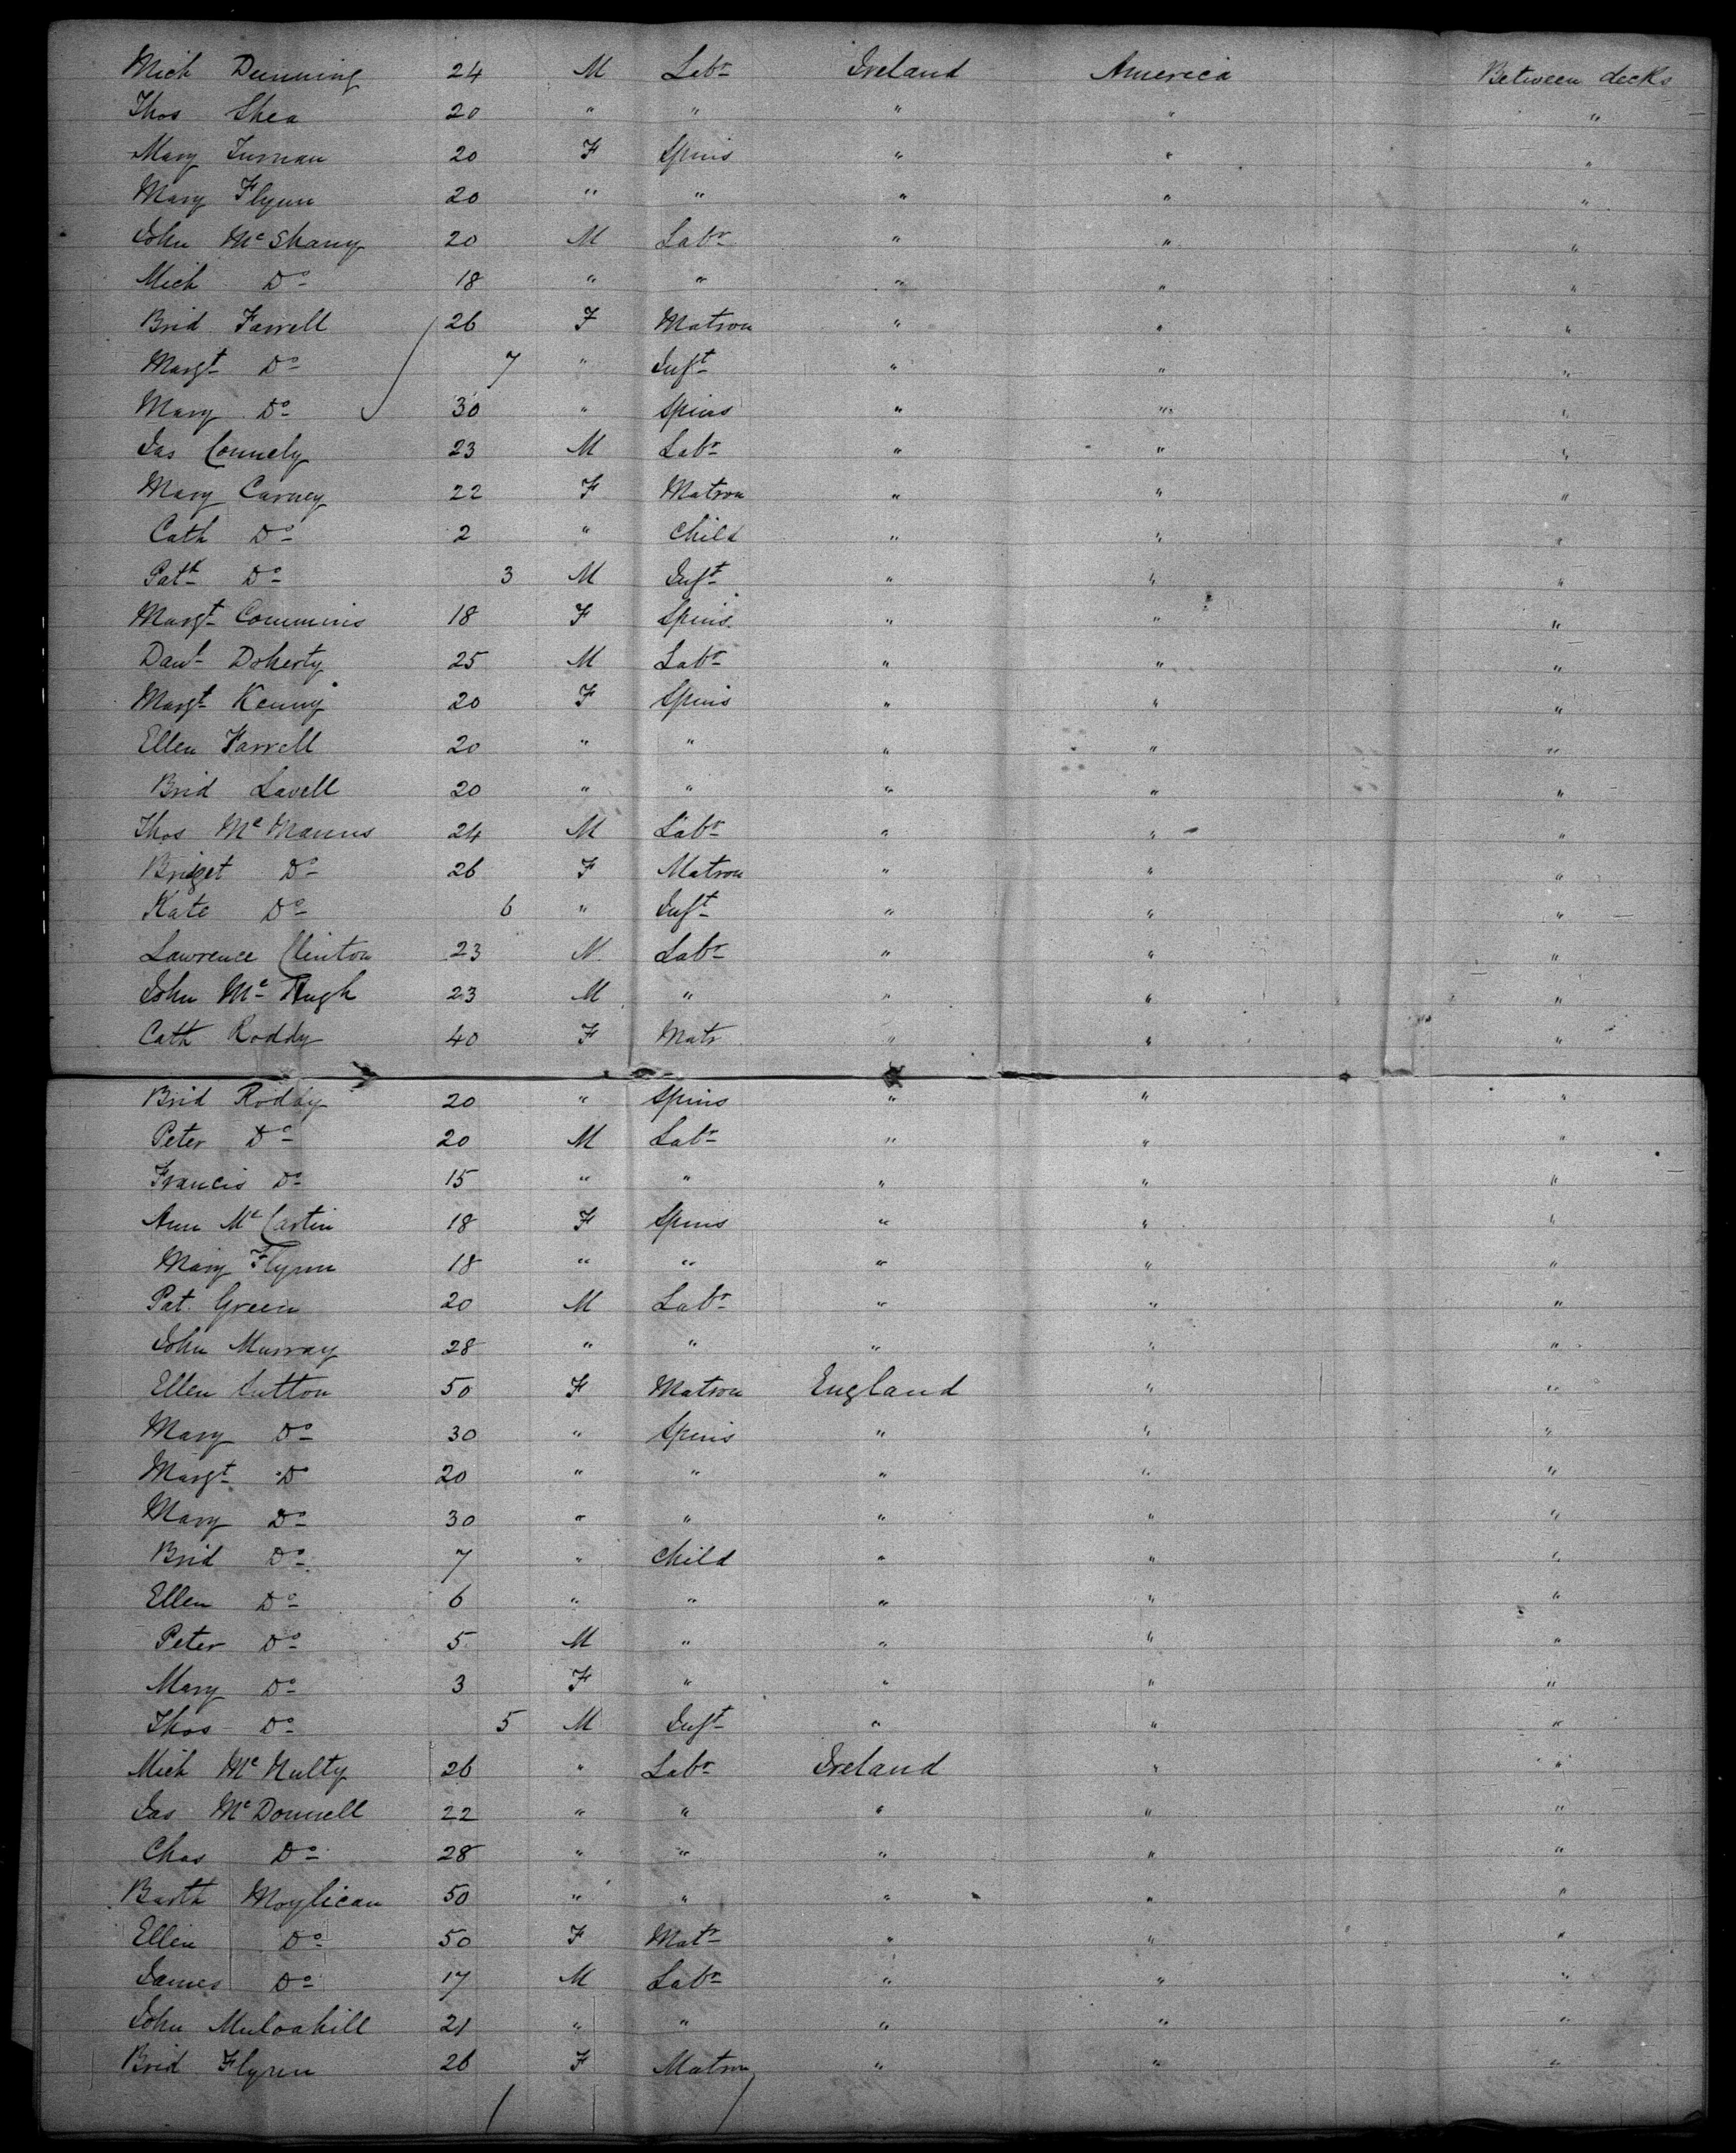 Mich Dunning 24 M Labr Ireland America Between decks
Thos Shea 20 " " " " "
Mary 20 F Spins " " "
Mary Flynn 20 " " " " "
John McShany 20 M Labr " " "
Mich Do 18 " " " " "
Brid Farrell 26 F Matron " " "
Margt Do 7 " Inft " " "
Mary Do 30 " Spins " " "
Jas Connely 23 M Labr " " "
Mary Carney 22 F Matron " " "
Cath Do 2 " Child " " "
Patk Do 3 M Inft " " "
Margt Commins 18 F Spins " " "
Danl Doherty 25 M Labr " " "
Margt Kenny 20 F Spins " " "
Ellen Farrell 20 " " " " "
Brid Lavell 20 " " " " "
Thos McManus 24 M Labr " " "
Bridget Do 26 F Matron " " "
Kate Do 6 " Inft " " "
Lawrence Clinton 23 M Labr " " "
John McHugh 23 M " " " "
Cath Roddy 40 F Matr " " "
Brid Roddy 20 " Spins " " "
Peter Do 20 M Labr " " "
Francis Do 15 " " " " "
Ann McCartin 18 F Spins " " "
Mary Flynn 18 " " " " "
Pat Green 20 M Labr " " "
John Murray 28 " " " " "
Ellen Sutton 50 F Matron England " "
Mary Do 30 " Spins " " "
Margt Do 20 " " " " "
Mary Do 30 " " " " "
Brid Do 7 " Child " " "
Ellen Do 6 " " " " "
Peter Do 5 M " " " "
Mary Do 3 F " " " "
Thos Do 5 M Inft " " "
Mich McNulty 26 " Labr Ireland " "
Jas McDonnell 22 " " " " "
Chas Do 28 " " " " "
Barth Moylican 50 " " " " "
Ellen Do 50 F Matr " " "
James Do 17 M Labr " " "
John Muloahill 21 " " " " "
Brid Flynn 26 F Matron " " "